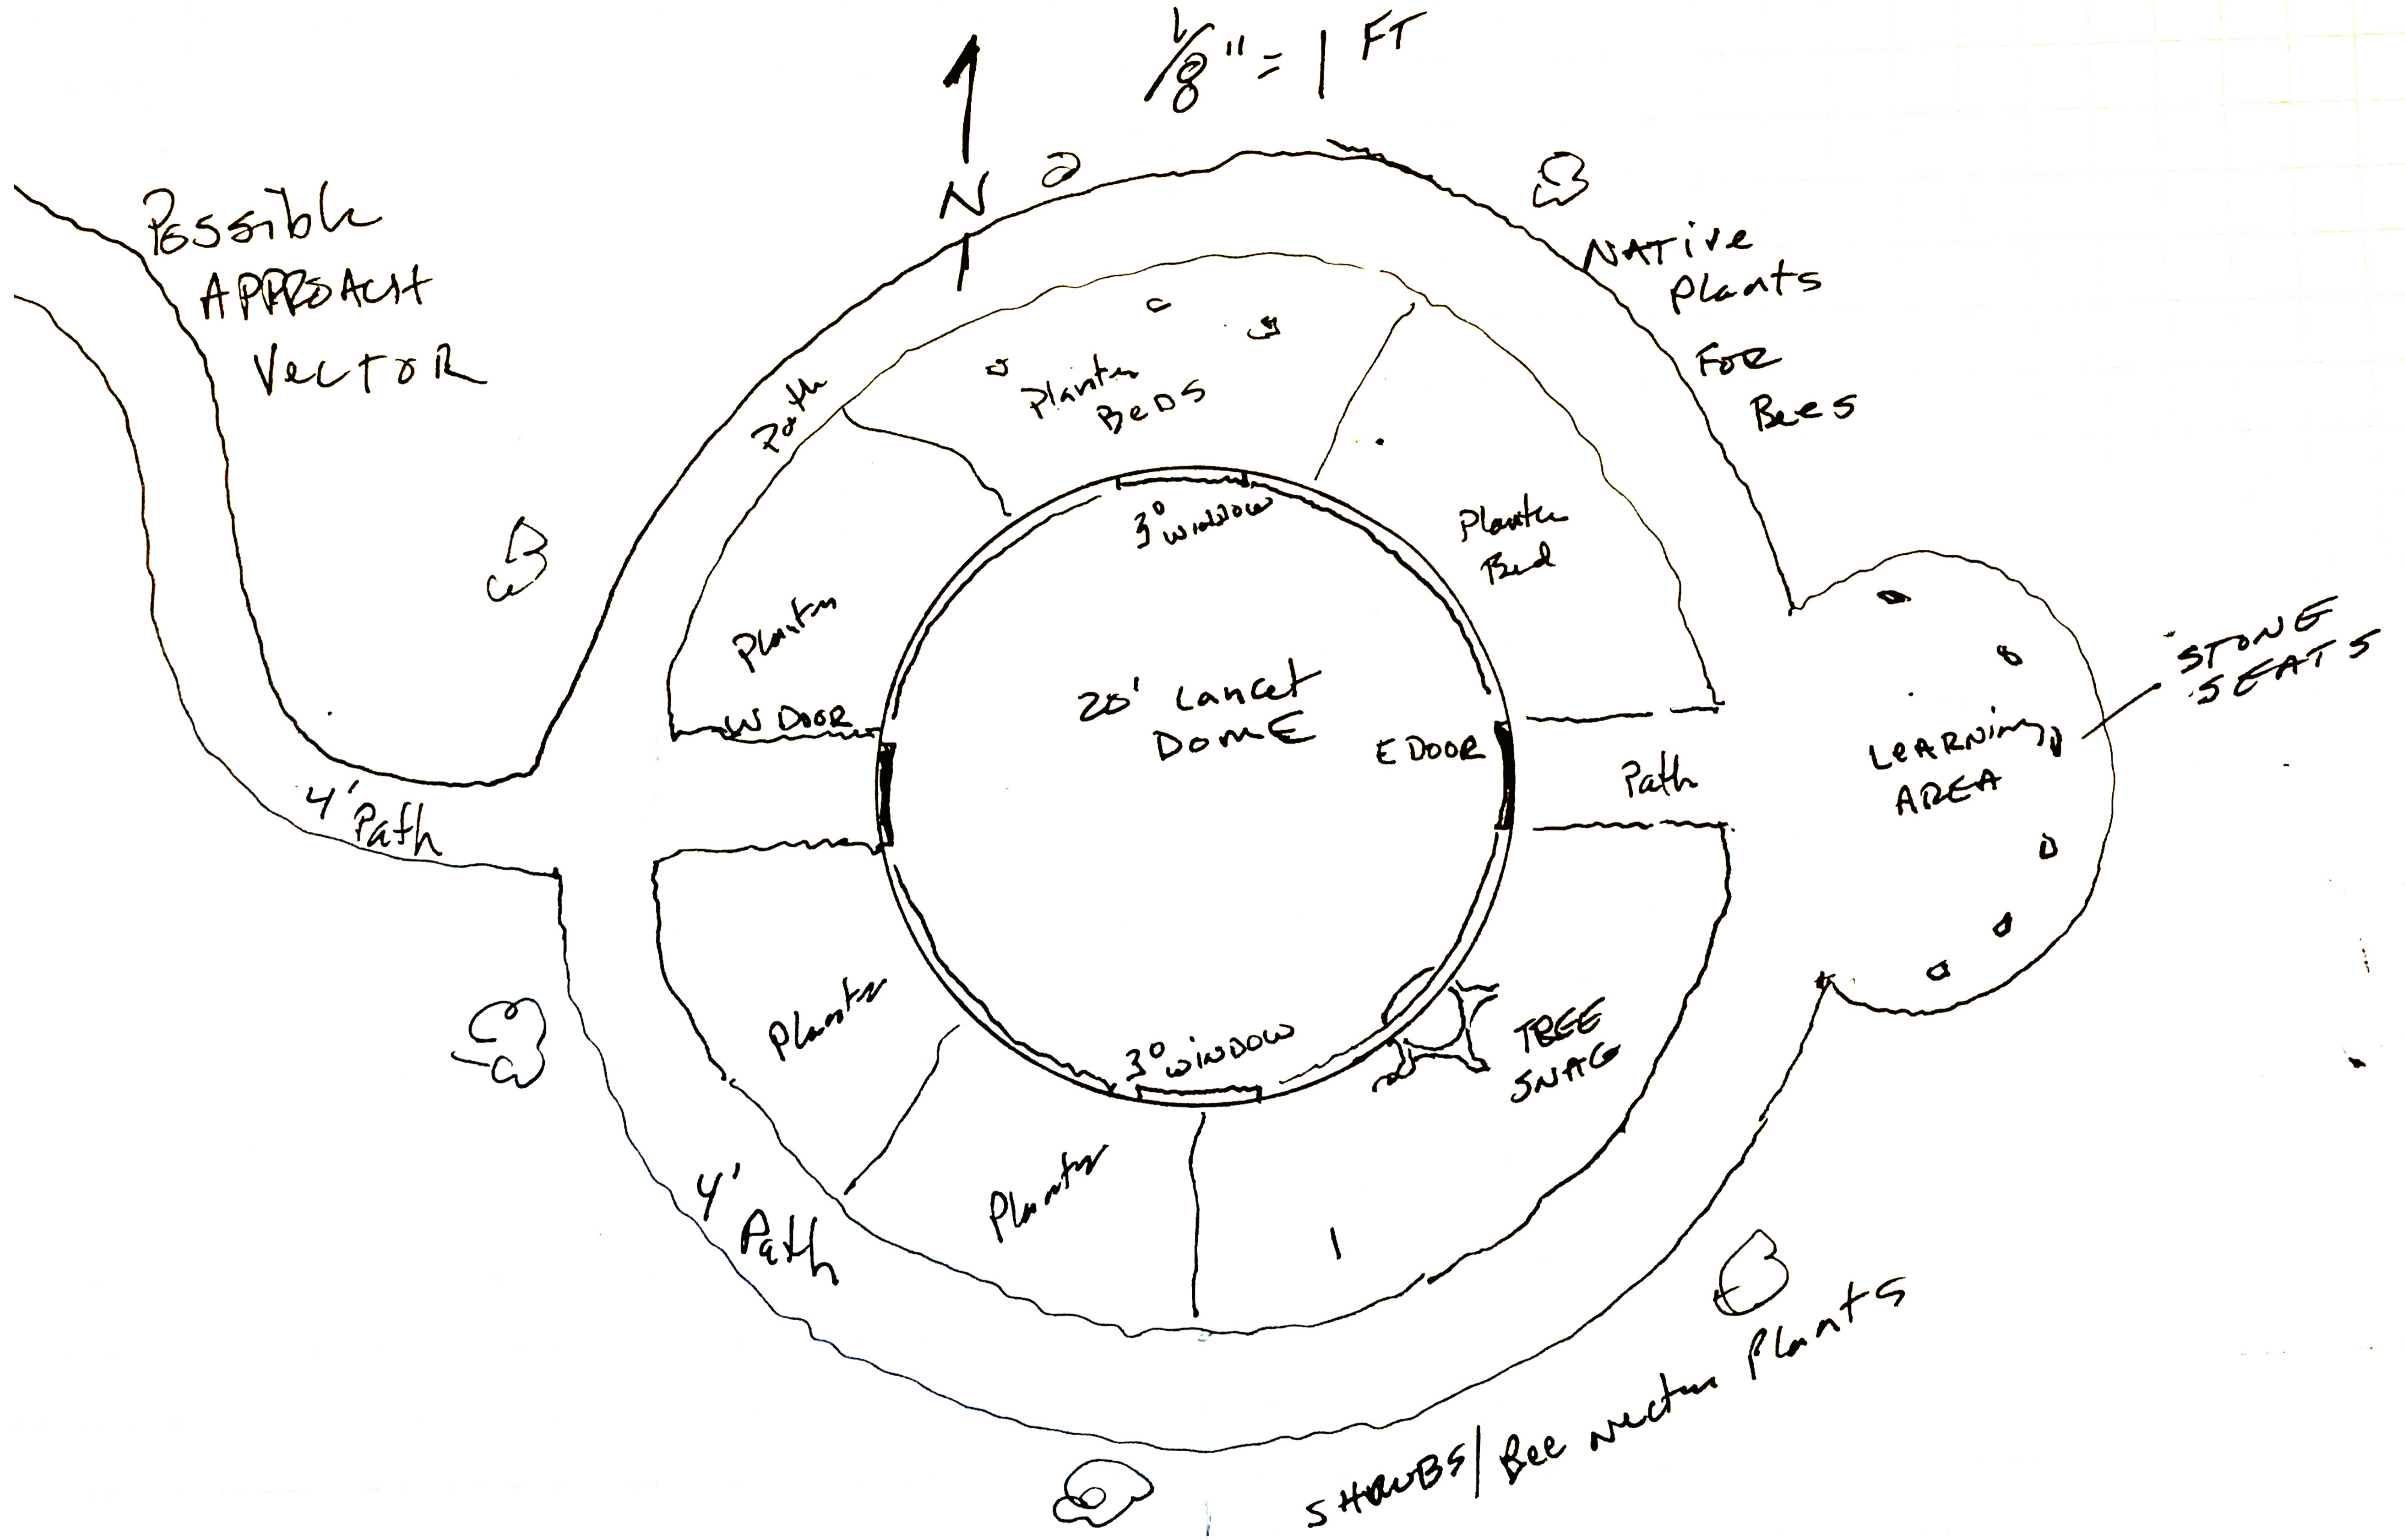 1/8" = 1 FT
N
Possible
APPROACH
VECTOR
NATIVE
Plants
FOR
Bees
Path
Planter
BEDS
3° WINDOW
Planter
Bed
Planter
W DOOR
20' Lancet
DOME
E DOOR
Path
LEARNING
AREA
STONE
SEATS
4' Path
Planter
3° WINDOW
TREE
SNAG
Planter
4'
Path
SHRUBS/Bee Nectar Plants